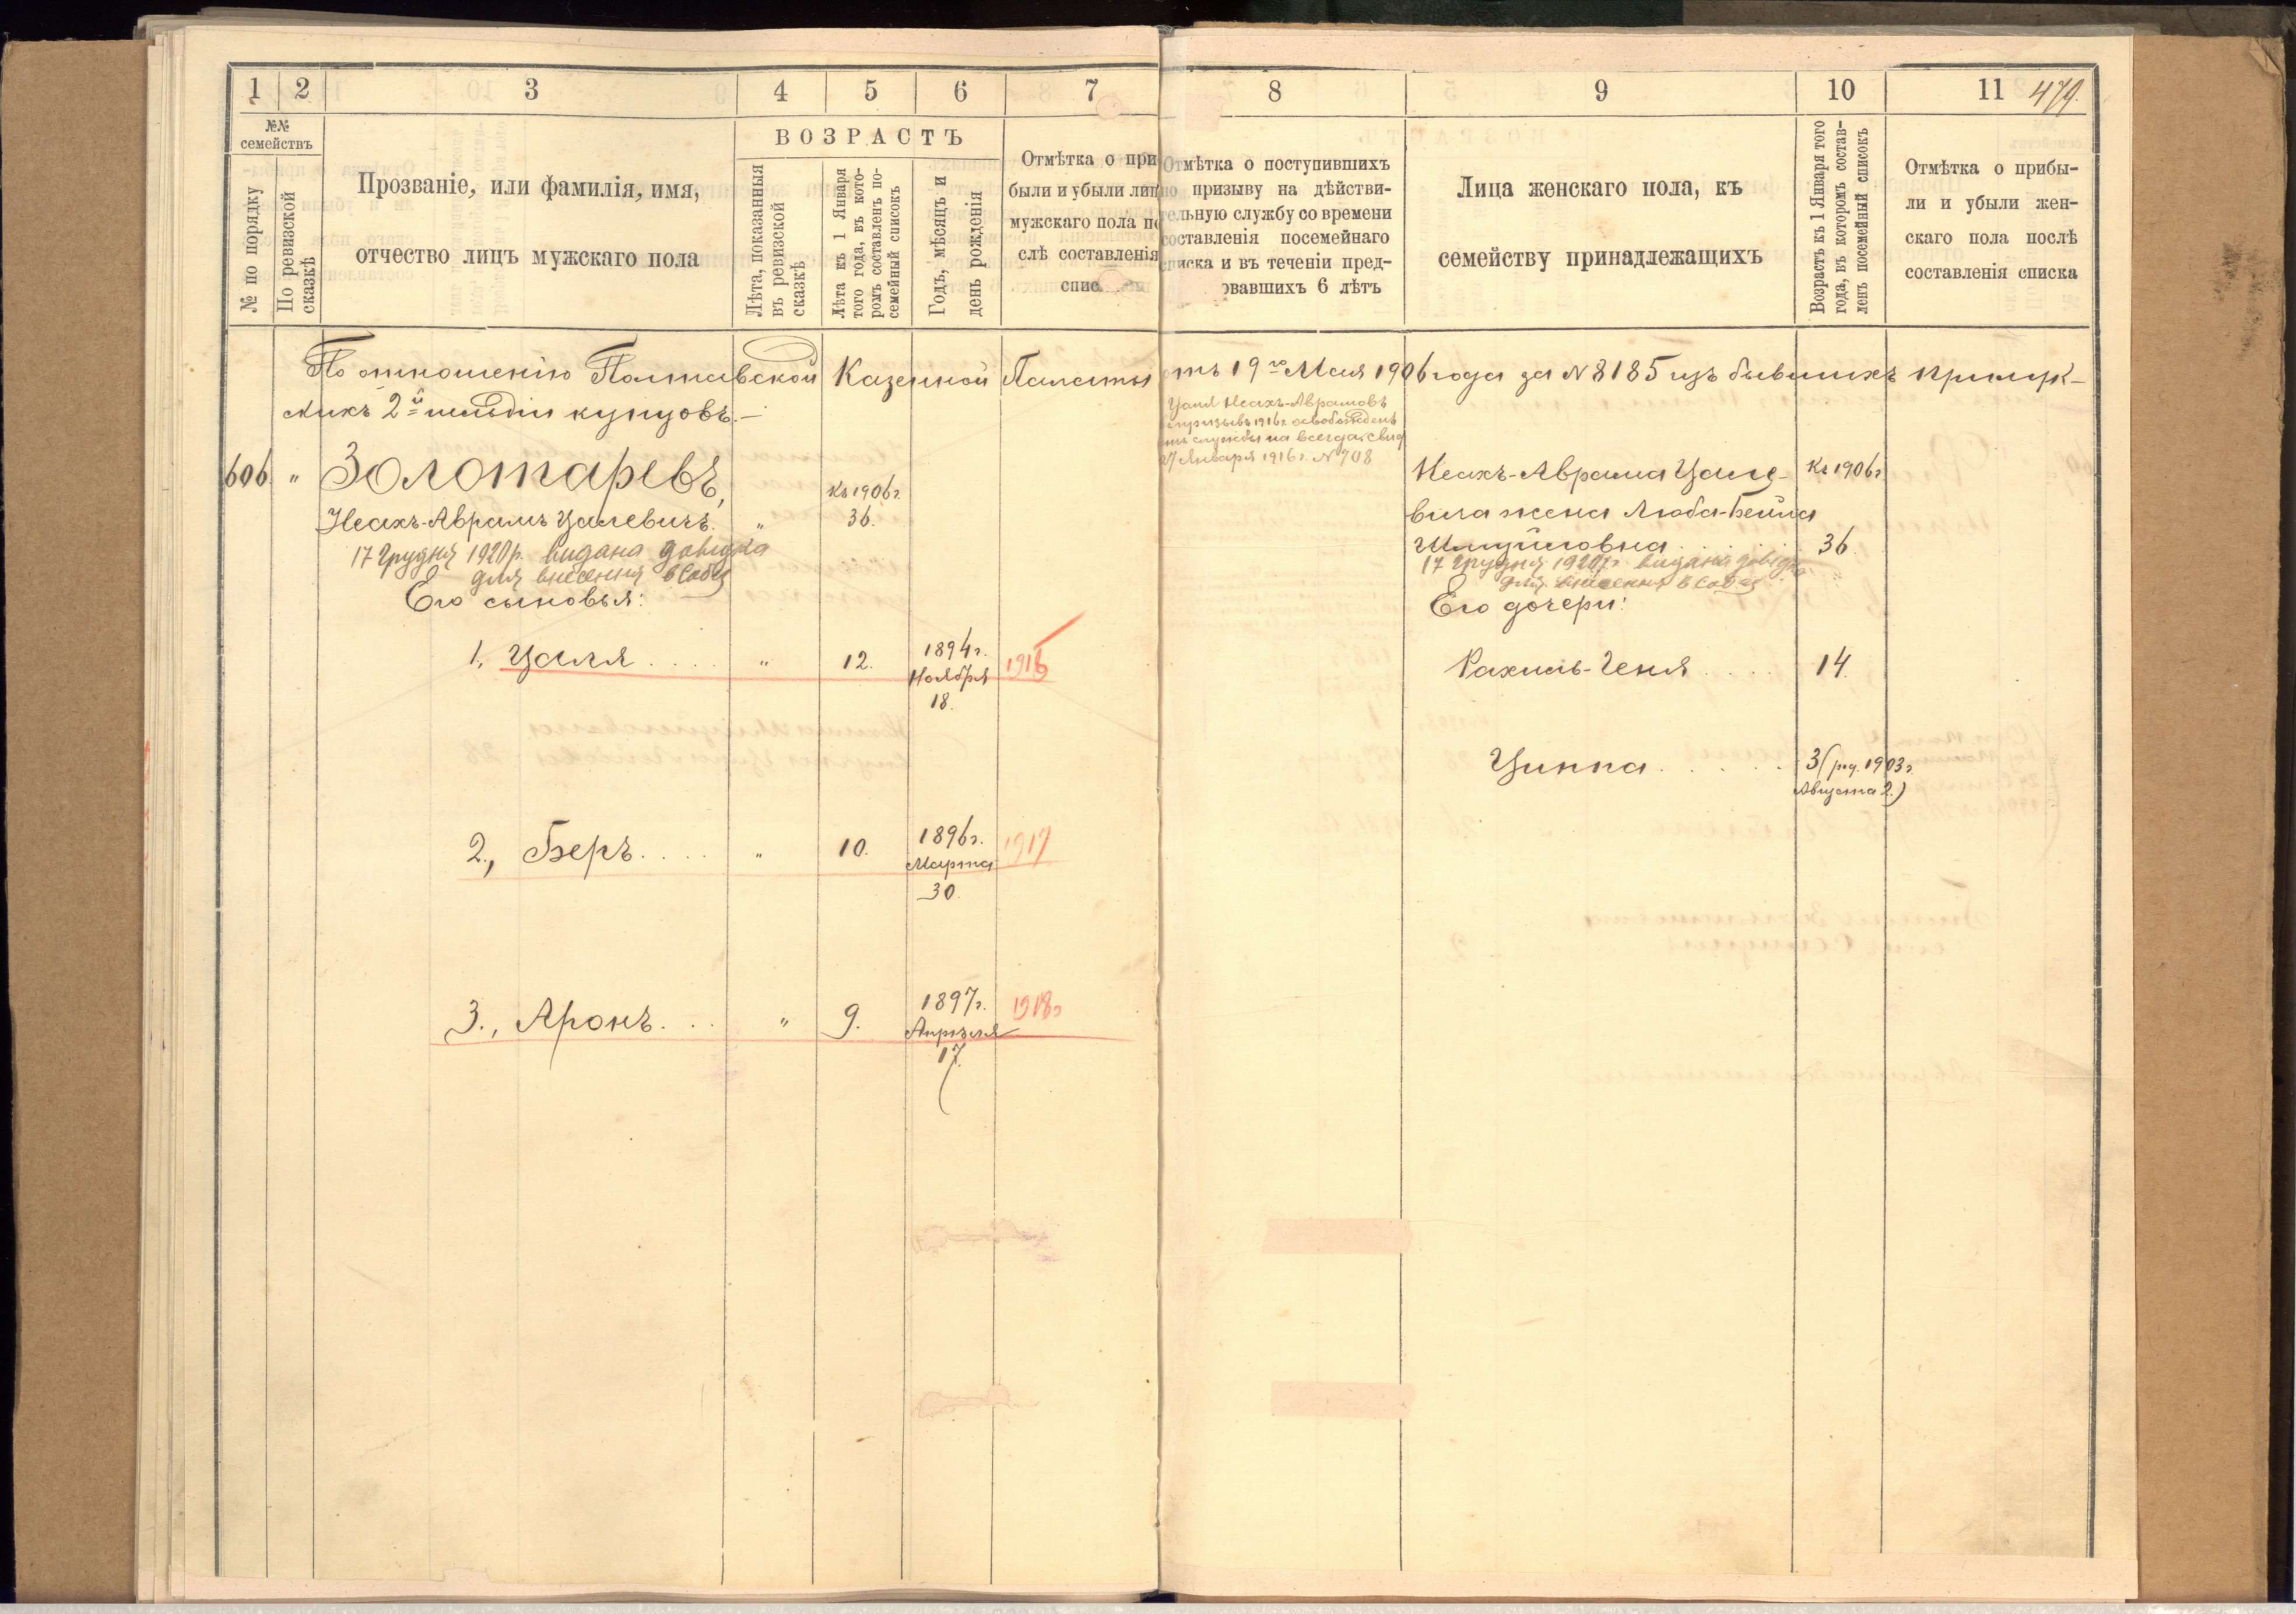 1 2 3 4 5 6 7 8 9 10 11 479.
№№ семействъ
№ по порядку
По ревизской сказкѣ
Прозваніе, или фамилія, имя,
отчество лицъ мужскаго пола
ВОЗРАСТЪ
Лѣта, показанныя
въ ревизской
сказкѣ
Лѣта къ 1 Января
того года, въ кото-
ромъ составленъ по-
семейный списокъ
Годъ, мѣсяцъ и
день рожденія
Отмѣтка о при
были и убыли лиц
мужскаго пола по
слѣ составленія
спис
Отмѣтка о поступившихъ
по призыву на дѣйстви-
тельную службу со времени
составленія посемейнаго
списка и въ теченіи пред-
овавшихъ 6 лѣтъ
Лица женскаго пола, къ
семейству принадлежащихъ
Возрастъ къ 1 Января того
года, въ которомъ состав-
ленъ посемейный списокъ
Отмѣтка о прибы-
ли и убыли жен-
скаго пола послѣ
составленія списка
По отношенію Полтавской Казенной Палаты отъ 19го Мая 1906 года за N 8185 изъ бывшихъ прилук-
скихъ 2й гильдіи купцовъ.—
Цаля Неахъ-Аврамовъ
въ призывъ 1916 г. освобожденъ
отъ службы на всегда, свид
27 Января 1916 г. N 708
606 " Золотаревъ,
Неахъ-Аврамъ Цалевичъ. "
Къ 1906 г.
36.
17 грудня 1920 р. видана довідка
для внесення в
Его сыновья:
1., Цаля . . . . " 12. 1894 г.
Ноября
18.
1916
2., Беръ. . . . " 10. 1896 г.
Марта
30.
1917
3., Аронъ. . . " 9. 1897 г.
Апрѣля
17.
1918 г
Неахъ-Аврама Цале-
вича жена Люба-Бейла
Шмуйловна . . . .
Къ 1906 г.
36
17 грудня 1920 р. видана довідка
для внесення в
Его дочери:
Рахиль-Геня . . . . 14.
Циппа . . . . . 3 (род. 1903 г.
Августа 2.)